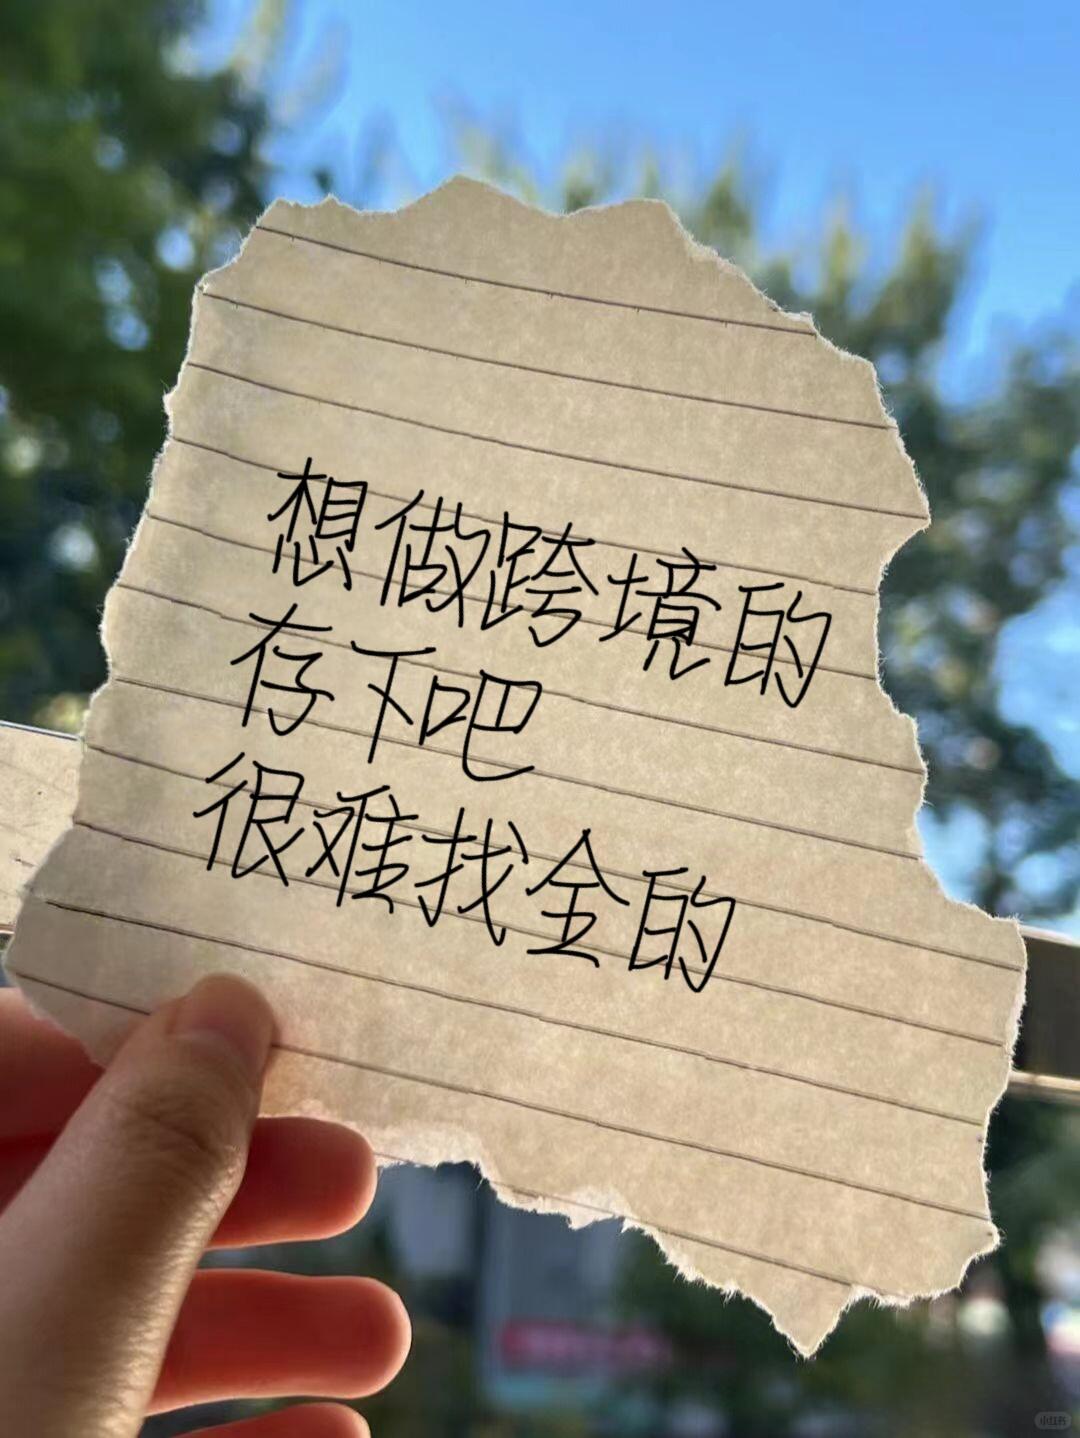 想做跨境的
存下吧
很难找全的
小红书